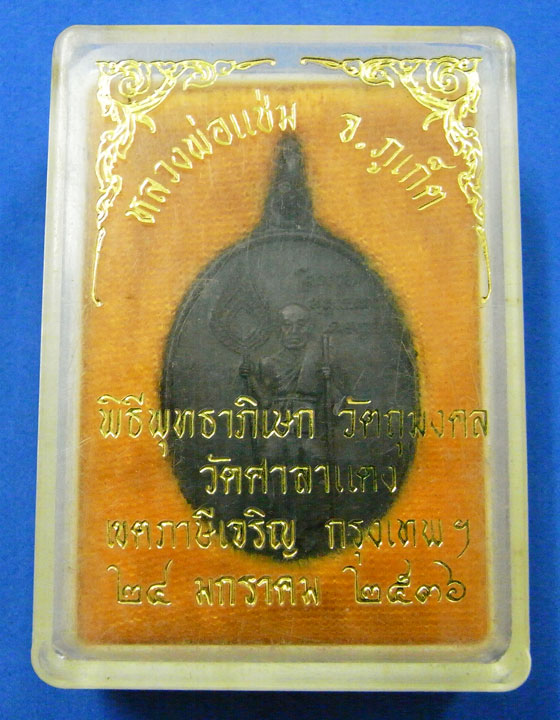 หลวงพ่อแช่ม จ.ภูเก็ต
พิธีพุทธาภิเษก วัตถุมงคล
วัดศาลาแดง
เขตภาษีเจริญ กรุงเทพฯ
๒๔ มกราคม ๒๕๓๖